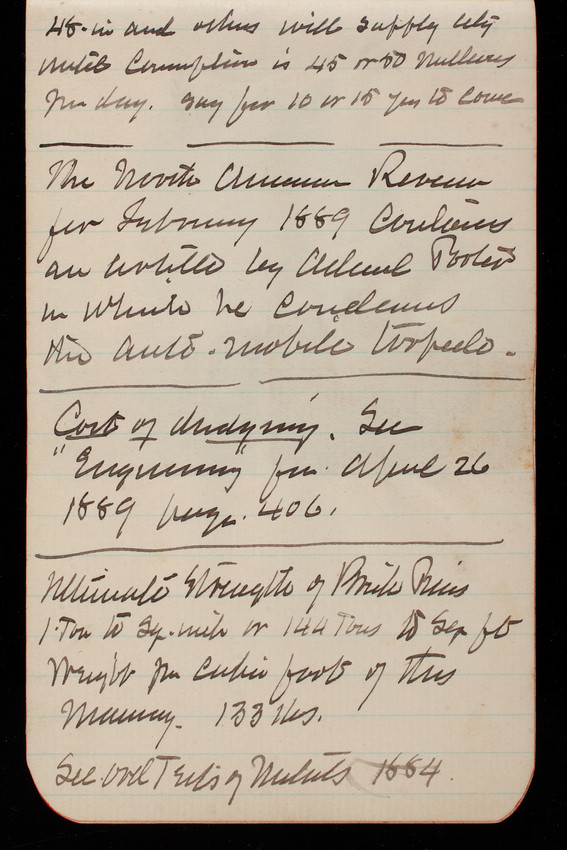 48-in and others will supply city
until Consumption is 45 or 50 Millions
per day. Say for 10 or 15 yrs to come
The North American Review
for February 1889 Contains
an article by Admiral Porter
in which he condemns
the auto-mobile torpedo.
Cost of dredging. See
"Engineering" for April 26
1889 page. 406.
Ultimate Strength of Brick Piers
1 Ton to Sq. inch or 144 Tons to Sq ft
Weight per Cubic foot of this
Masonry. 133 lbs.
See Tests of Metals 1884.